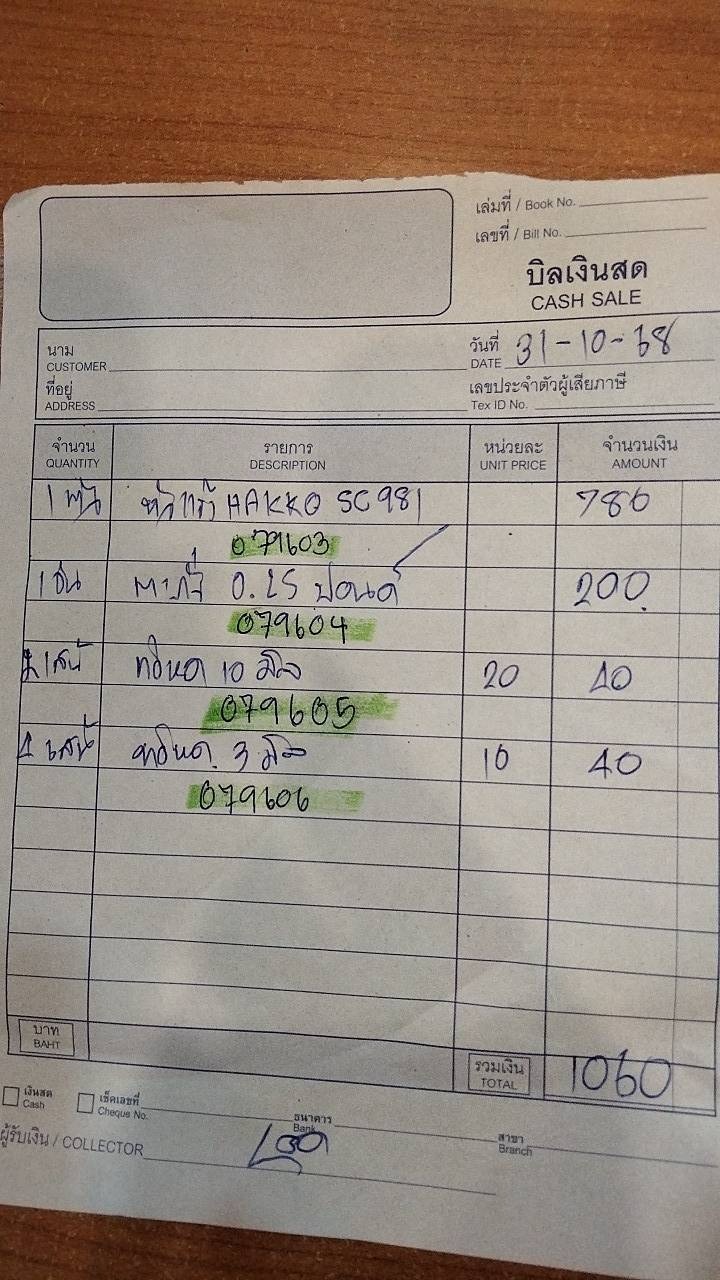 เล่มที่ / Book No.
เลขที่ / Bill No.
บิลเงินสด
CASH SALE
นาม
CUSTOMER
วันที่ 31-10-68
DATE
ที่อยู่
ADDRESS
เลขประจำตัวผู้เสียภาษี
Tex ID No.
จำนวน รายการ หน่วยละ จำนวนเงิน
QUANTITY DESCRIPTION UNIT PRICE AMOUNT
1 HAKKO SC981 780
079603
1 0.25 ปอนด์ 200
079604
เส้น 10 มิล 20 40
079605
4 เส้น 3 มิล 10 40
079606
บาท
BAHT
รวมเงิน 1060
TOTAL
เงินสด เช็คเลขที่ ธนาคาร สาขา
Cash Cheque No. Bank Branch
ผู้รับเงิน / COLLECTOR